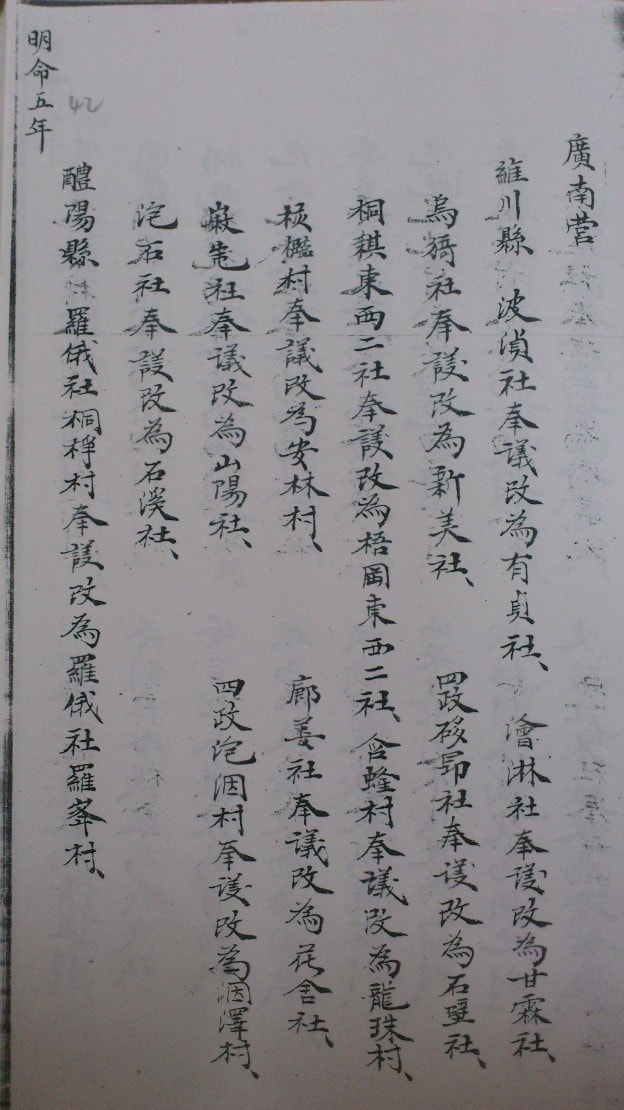 廣南営
維川縣 波湞社奉議改為有貞社、 澮淋社奉議改為甘霖社、
烏猗社奉議改為新美社、 四政硋昻社奉議改為石壁社、
桐棋東西二社奉議改為梧岡東西二社、含蜂村奉議改為龍珠村、
核檻村奉議改為安林村、 廊姜社奉議改為花舍社、
社奉議改為山陽社、 四政洍洇村奉議改為洇澤村、
石社奉議改為石溪社、
醴陽縣 羅俄社桐村奉議改為羅俄社羅峯村、
明命五年
42